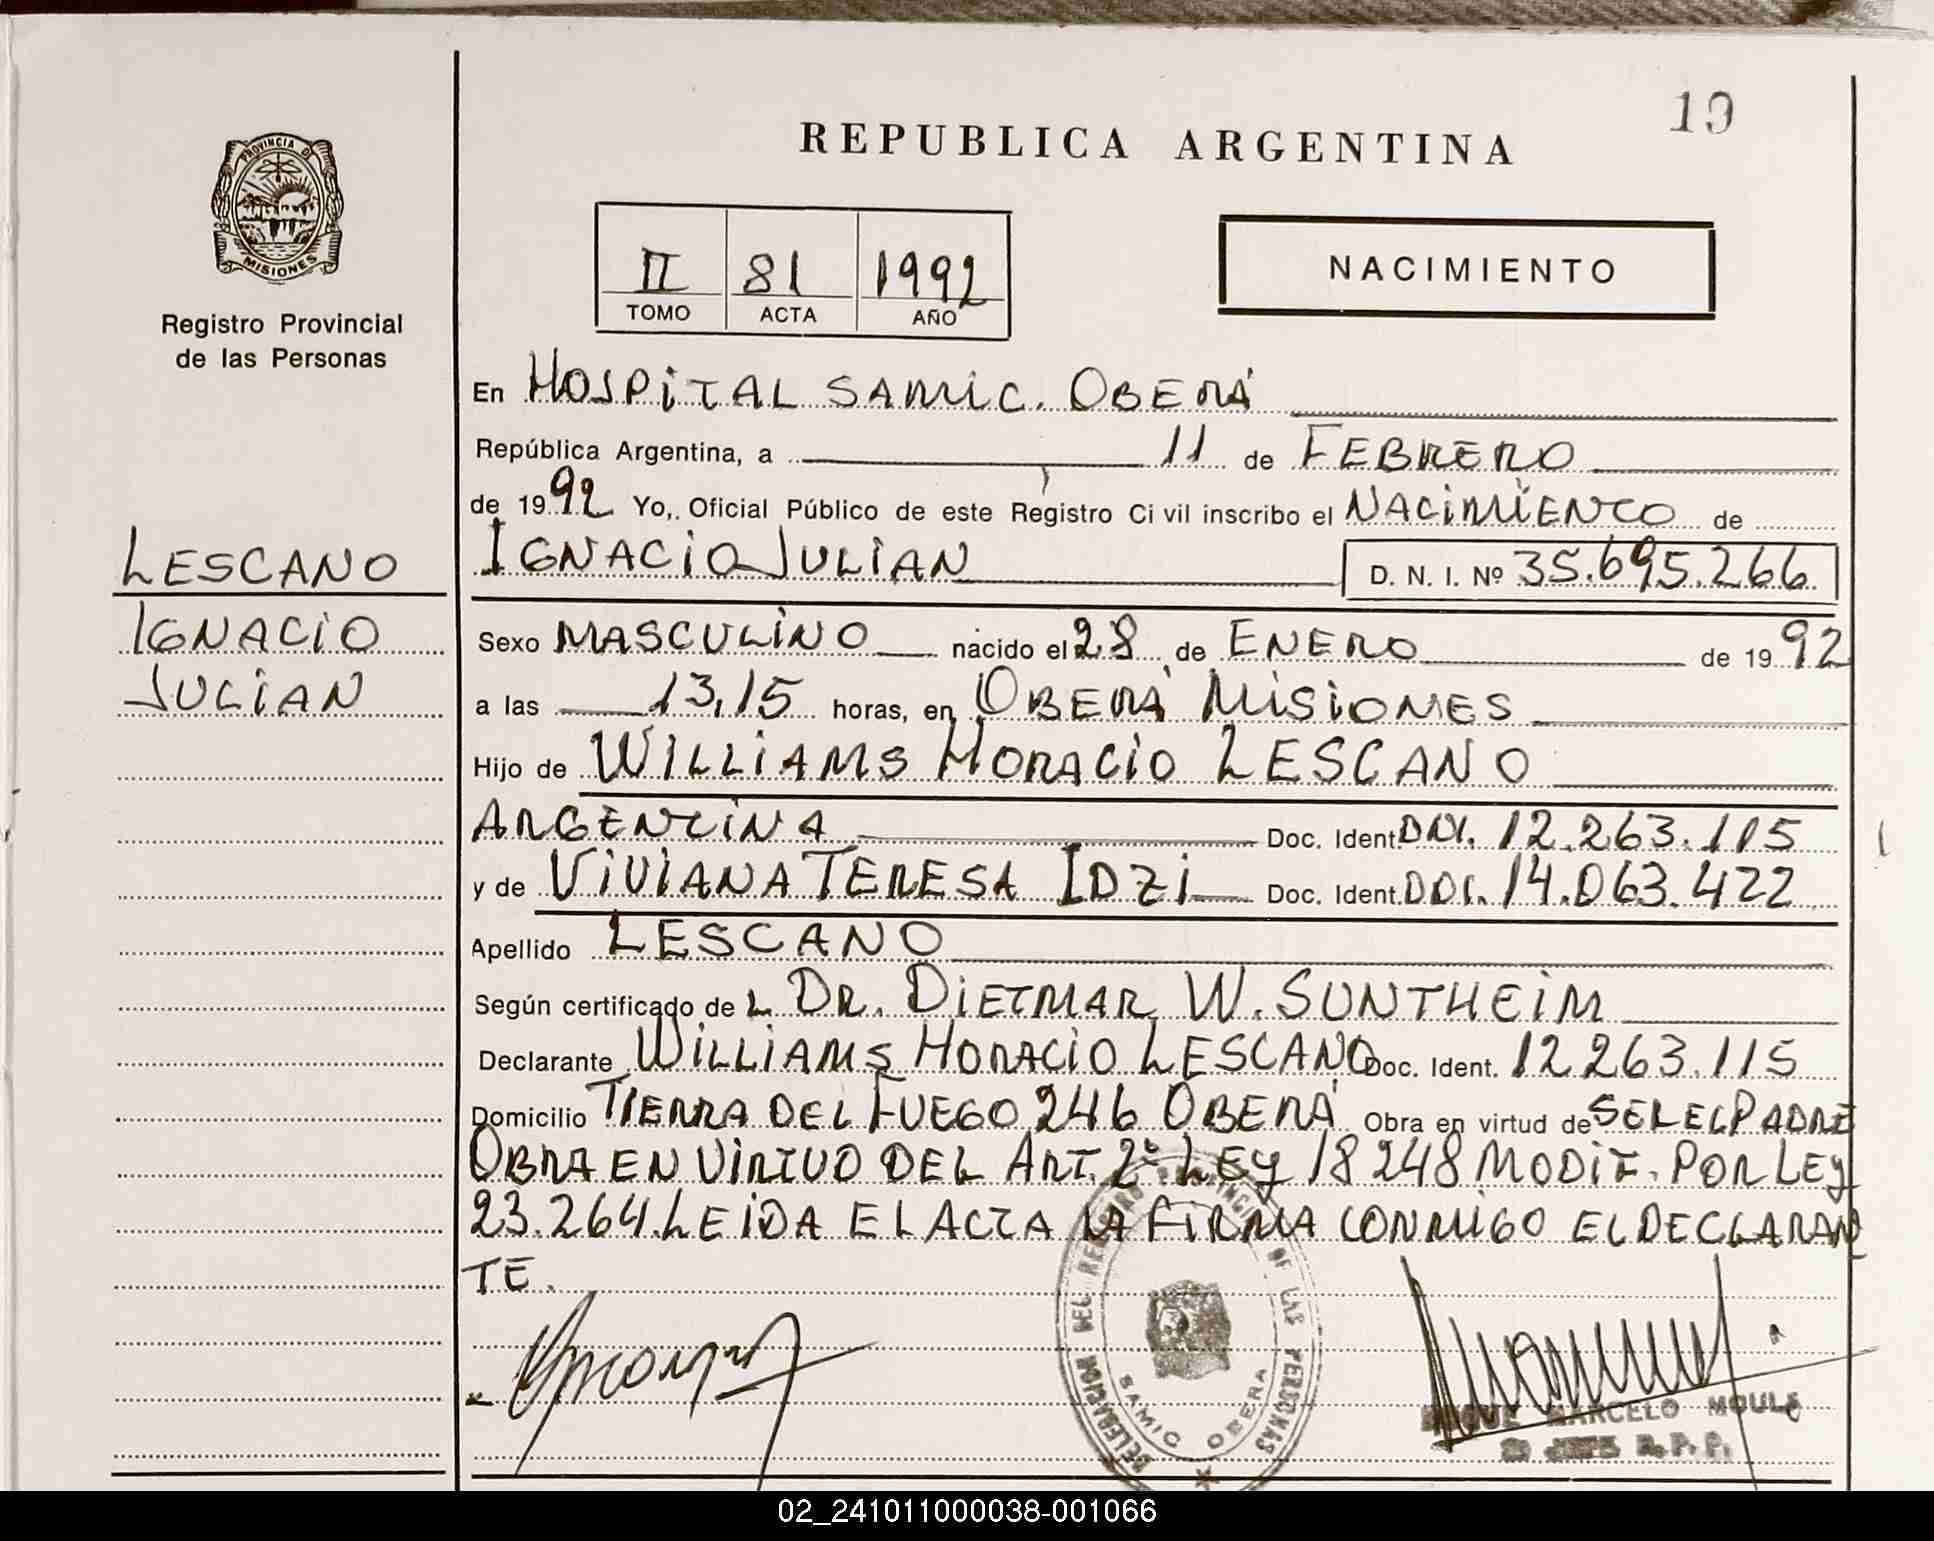 19
REPUBLICA ARGENTINA
PROVINCIA D
MISIONES
Registro Provincial
de las Personas
II 81 1992
TOMO ACTA AÑO
NACIMIENTO
En HOSPITAL SAMIC. OBERÁ
República Argentina, a 11 de FEBRERO
de 1992 Yo, Oficial Público de este Registro Ci vil inscribo el NACIMIENTO de
IGNACIO JULIAN D. N. I. Nº 35.695.266
LESCANO
IGNACIO
JULIAN
Sexo MASCULINO nacido el 28 de ENERO de 1992
a las 13,15 horas, en OBERÁ MISIONES
Hijo de WILLIAMS HORACIO LESCANO
ARGENTINA Doc. Ident DNI. 12.263.115
y de VIVIANA TERESA IDZI Doc. Ident. DNI. 14.063.422
Apellido LESCANO
Según certificado de L DR. DIETMAR W. SUNTHEIM
Declarante WILLIAMS HORACIO LESCANO Doc. Ident. 12263.115
Domicilio TIERRA DEL FUEGO 246 OBERÁ Obra en virtud de SER EL PADRE
OBRA EN VIRTUD DEL ART. 2º LEY 18248 MODIF. POR LEY
23.264. LEIDA EL ACTA LA FIRMA CONMIGO EL DECLARAN
TE.
DELEGACION DEL REGISTRO PROVINCIAL DE LAS PERSONAS
SAMIC OBERA
MARCELO MOULE
JEFE R. P. P.
02_241011000038-001066